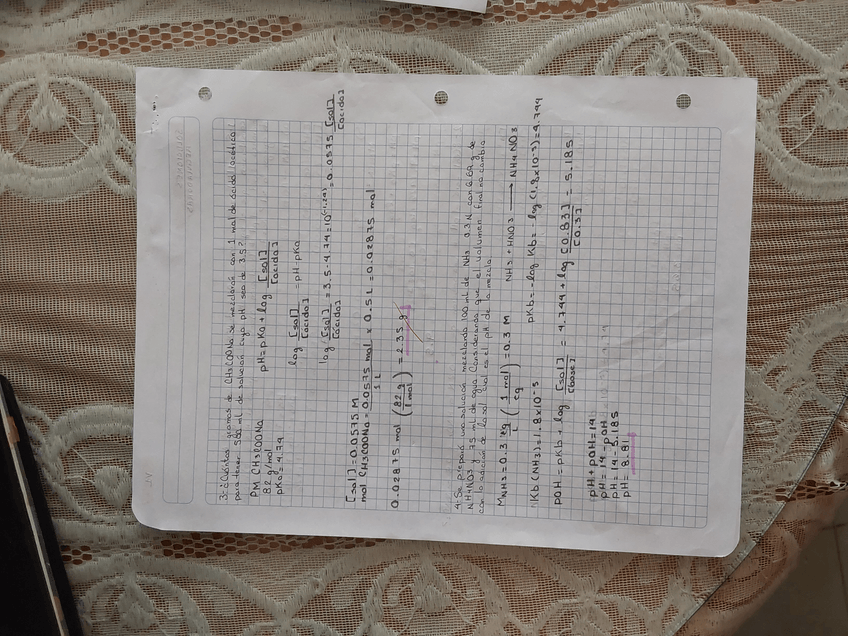 3.- ¿Cuántos gramos de CH3COONa se mezclarán con 1 mol de ácido (acético)
para tener 500 ml de solución cuyo pH sea de 3.5?
PM CH3COONa
82 g/mol
pKa = 4.74
pH = pKa + log [sal] / [acido]
log [sal] / [acido] = pH - pKa
log [sal] / [acido] = 3.5 - 4.74 = 10^(-1.24) = 0.0575 [sal] / [acido]
[sal] = 0.0575 M
mol CH3COONa = 0.0575 mol / 1 L x 0.5 L = 0.02875 mol
0.02875 mol (82 g / 1 mol) = 2.35 g
4. Se preparó una solución mezclando 100 ml de NH3 0.3 N con 6.69 g de
NH4NO3 y 75 ml de agua. Considerando que el volumen final no cambia
con la adición de la sal. Cual es el pH de la mezcla
M NH3 = 0.3 eq / L (1 mol / eq) = 0.3 M
NH3 + HNO3 → NH4NO3
Kb (NH3) = 1.8x10^-5
pKb = -log Kb = -log (1.8x10^-5) = 4.744
pOH = pKb + log [sal] / [base] = 4.744 + log [0.83] / [0.3] = 5.185
pH + pOH = 14
pH = 14 - pOH
pH = 14 - 5.185
pH = 8.81